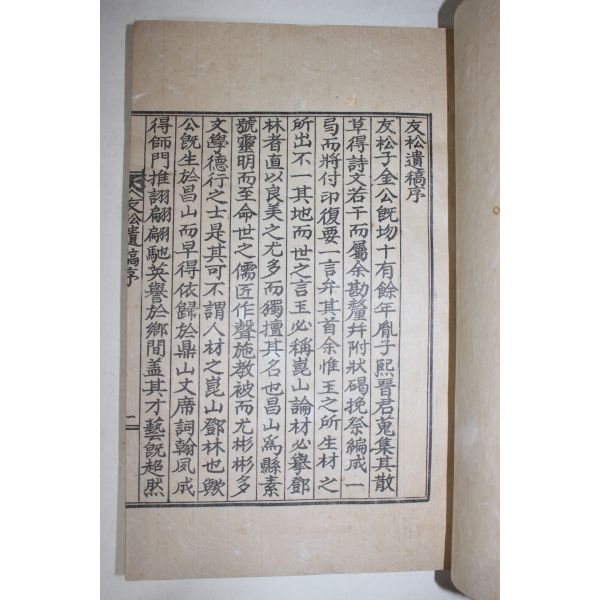 友松遺稿序
友松子金公旣均十有餘年胤子熙晉君蒐集其散
草得詩文若干而屬余勘釐幷附狀碣挽祭編成一
弓而將付印復要一言弁其首余惟玉之所生材之
所出不一其地而世之言玉必稱崑山論材必擧鄧
林者直以良美之尤多而獨擅其名也昌山爲縣素
號靈明而至命世之儒匠作聲施敎被而尤彬彬多
文學德行之士是其可不謂人材之崑山鄧林也歟
公旣生於昌山而早得依歸於鼎山文席詞翰夙成
得師門推詡翩翩馳英譽於鄕閭盖其才藝旣超然
友松遺稿序